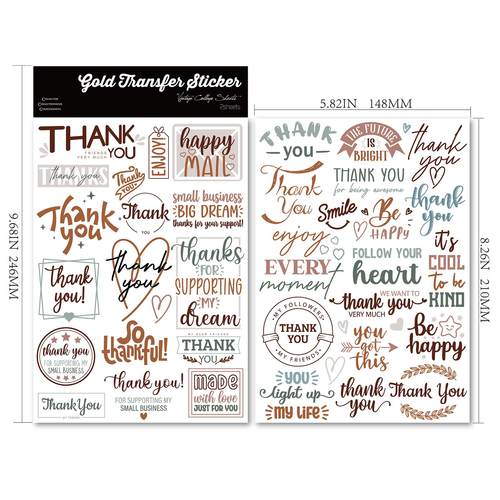 Gold Transfer Sticker
Vintage Collage Sheets
2sheets
5.82IN 148MM
9.68IN 246MM
8.26IN 210MM
THANK
YOU
FRIENDS
VERY MUCH
ENJOY!
happy
MAIL
THANKS
thank you
Thank
You
Thank
you
Thank
You
small business
BIG DREAM
thanks for your support!
thank
you!
thank
you
thanks
FOR
SUPPORTING
MY
dream
thank you
FOR SUPPORTING MY
SMALL BUSINESS
so
thankful!
MY DEAR FRIENDS
THANK
YOU
thank you!
FOR SUPPORTING MY
SMALL BUSINESS
made
with love
JUST FOR YOU
Thank You
THANK
you
THE FUTURE
IS
BRIGHT
thank
you
Thank
You
THANK YOU
for being awesome
Smile
thank
you
Be
HAPPY
enjoy
it's
COOL
to be
KIND
EVERY
moment
FOLLOW YOUR
heart
WE WANT TO
thank you
VERY MUCH
MY FOLLOWERS
THANK
YOU
MY FRIENDS
you
got
this
Be
happy
YOU
light up
MY LIFE
thank
you
Thank You